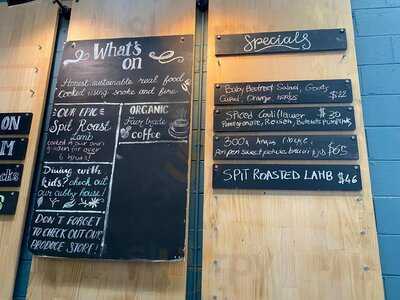 What's
on
Honest, sustainable real food
cooked using smoke and fire
OUR EPIC
Spit Roast
Lamb
cooked in our own
garden for over
6 hours!
ORGANIC
Fair trade
coffee
Dining with
kids? check out
our cubby house!
DON'T FORGET
TO CHECK OUT OUR
PRODUCE STORE!
ON
M
Specials
Baby Beetroot Salad, Goats
Curd, Orange, herbs $22
Spiced Cauliflower $30
Pomegranate,
300g Angus
sweet potato $65
SPIT ROASTED LAMB $46